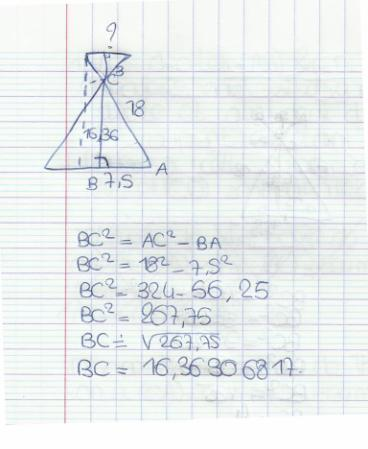 ?
3
C
18
16,36
A
B 7,5
BC² = AC² - BA
BC² = 18² - 7,5²
BC² = 324 - 56,25
BC² = 267,75
BC = √267,75
BC = 16,36306817.